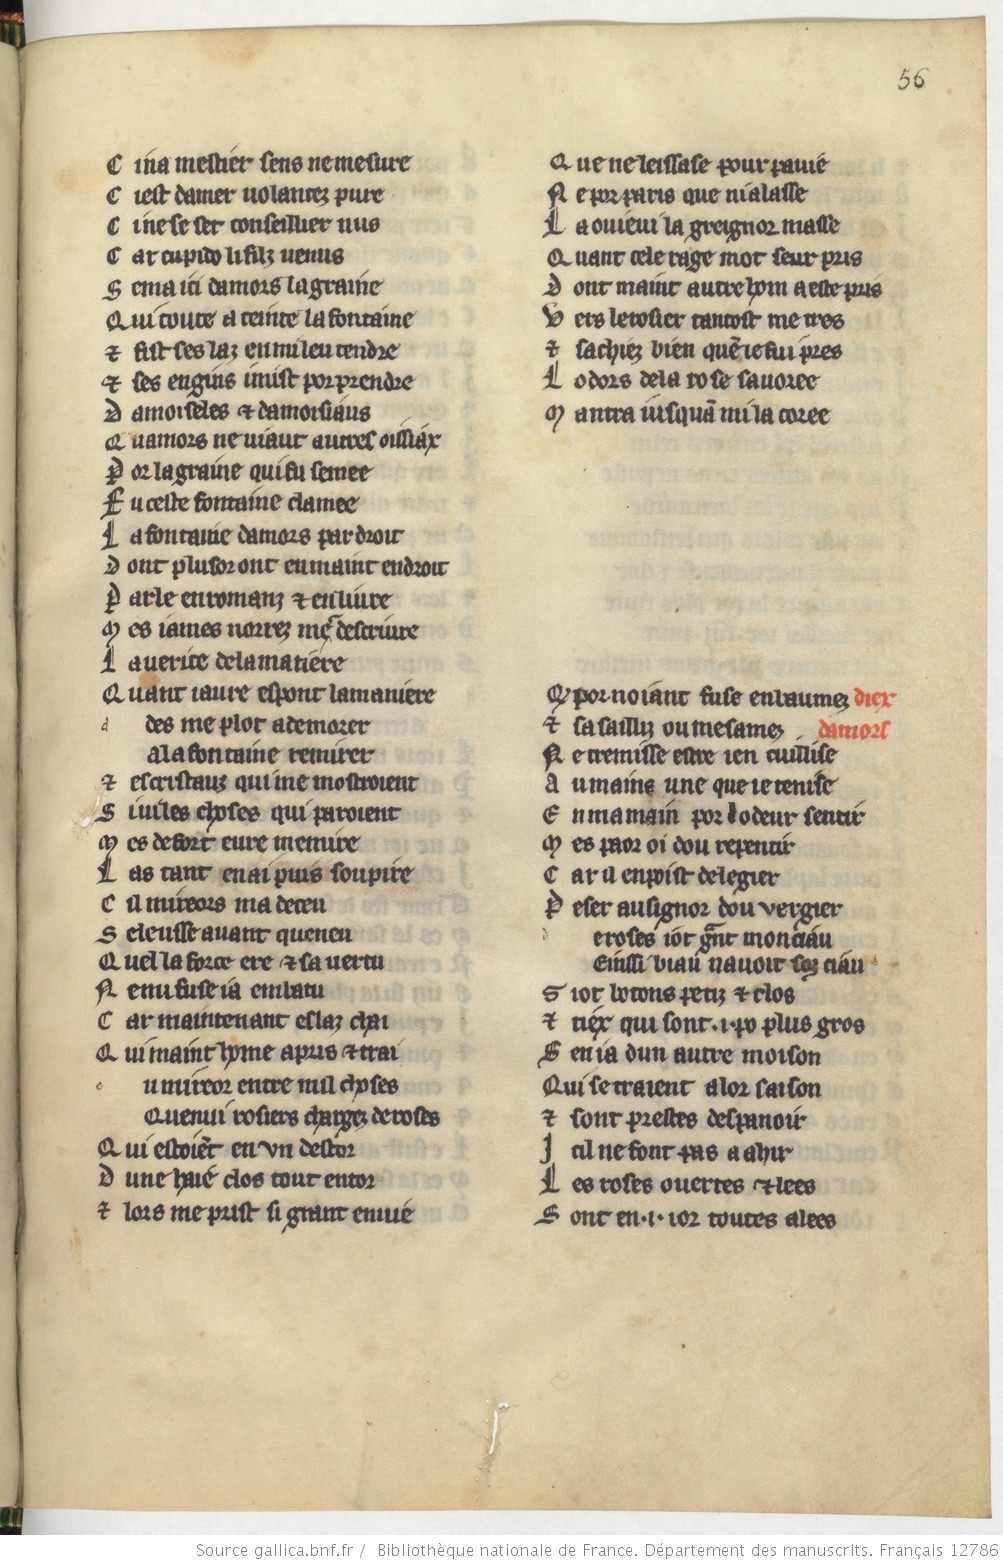 56
C ina mestier sens ne mesure
C iest damer uolantez pure
C i ne se set conseillier nus
C ar cupido li filz uenus
S ema ici damors la graine
Q ui toute a teinte la fontaine
⁊ fist ses laz en mi leu tendre
⁊ ses engins i mist por prendre
D amoiseles ⁊ damoisiaus
Q uamors ne uiaut autres oisiax
P or la graine qui fu semee
F u ceste fontaine clamee
L a fontaine damors par droit
D ont plusor ont en maint endroit
P arle en romanz ⁊ en liure
M es iames norrez descriure
L a uerite de la matiere
Q uant iaure espont la maniere
a des me plot a demorer
A la fontaine remirer
⁊ es cristauz qui me mostroient
S i uiles choses qui paroient
M es de fort eure me mire
L as tant en ai puis soupire
C il mireors ma deceu
S e leusse auant queneu
Q uel la force ere ⁊ sa uertu
N e mi fuse ia embatu
C ar maintenant es laz chai
Q ui maint home a pris ⁊ trai
o u mireor entre mil choses
Quenui rosiers chargez de roses
Q ui estoiẽt en vn destor
D une haie clos tout entor
⁊ lors me prist si grant enuie
Q ue ne leissase pour pauie
N e por paris que ni alasse
L a ou ie ui la greignor masse
Q uant cele rage mot seur pris
D ont maint autre hom a este pris
V ers le rosier tantost me tres
⁊ sachiez bien que ie fui pres
L odors de la rose sauoree
M antra iusquan mi la coree
Q por noiant fuse enbaumez diex
⁊ sasailliz ou mesamez damors
N e cremisse estre ien cuillise
A u mains une que ie tenise
E n ma main por lodeur sentir
M es paor oi dou repentir
C ar il en poist de legier
P eser au signor dou vergier
d e roses iot grãt monciau
Einssi biau nauoit soz ciau
S i ot botons petiz ⁊ clos
⁊ tiex qui sont .i. po plus gros
S en ia dun autre moison
Q ui se traient a lor saison
⁊ sont prestes despanoir
I cil ne font pas a ahir
L es roses ouertes ⁊ lees
S ont en .i. ior toutes alees
Source gallica.bnf.fr / Bibliothèque nationale de France. Département des manuscrits. Français 12786